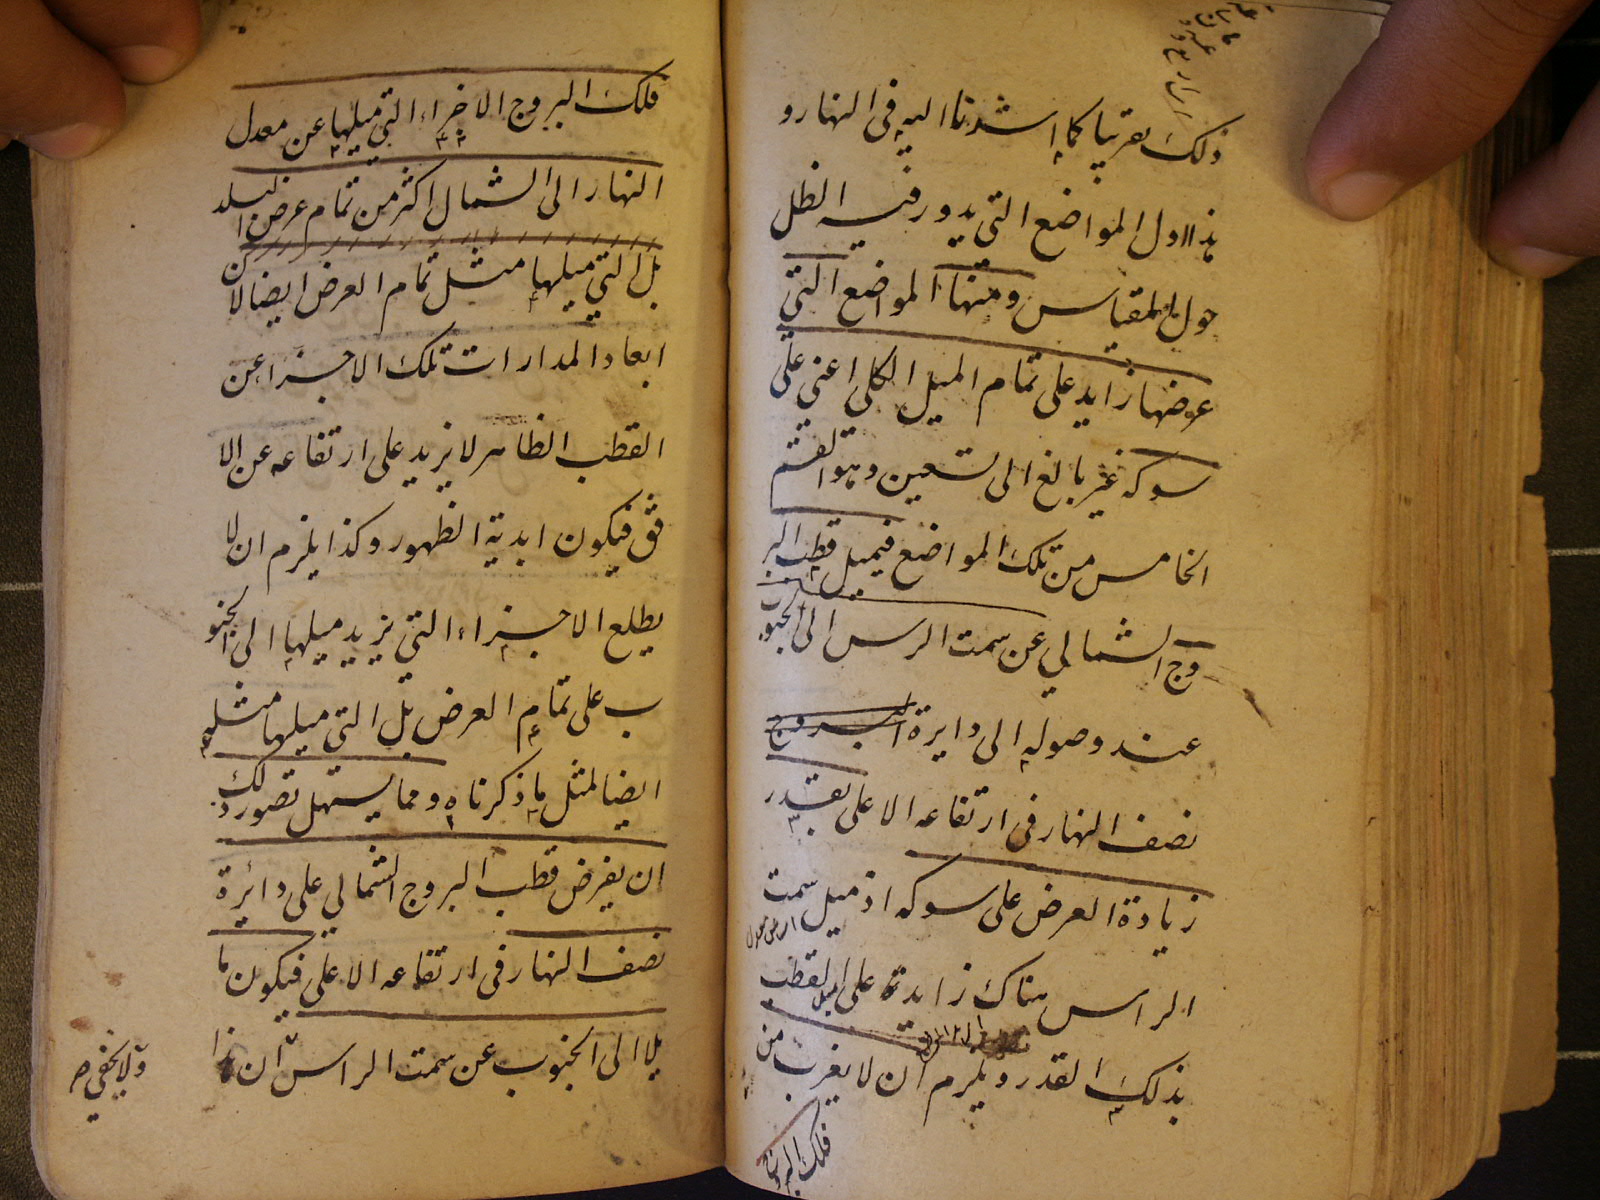 ذلك تقريبا كما اشرنا اليه فى النهار و
هذا اول المواضع التى يدور فيه الظل
حول المقياس ومنها المواضع التى
عرضها زايد على تمام الميل الكلى اعنى على
سوكه غير بالغ الى تسعين وهو القسم
الخامس من تلك المواضع فيميل قطب البر
وج الشمالي عن سمت الرس الى الجنوب
عند وصوله الى دايرة البروج
نصف النهار فى ارتفاعه الاعلى بقدر
زيادة العرض على سوكه اذ ميل سمت
الراس هناك زايد على ميل القطب
بذلك القدر ويلزم ان لا يغرب من
فلك البروج
فلك البروج الاجزاء التي ميلها عن معدل
النهار الى الشمال اكثر من تمام عرض البلد
بل التي ميلها مثل تمام العرض ايضا لان
ابعاد المدارات تلك الاجزا عن
القطب الظاهر لا يزيد على ارتفاعه عن الا
فق فيكون ابدية الظهور وكذا يلزم ان لا
يطلع الاجزاء التي يزيد ميلها الى الجنو
ب على تمام العرض بل التي ميلها مثله
ايضا لمثل ما ذكرناه ومما يسهل تصور ذلك
ان يفرض قطب البروج الشمالي على دائرة
نصف النهار فى ارتفاعه الاعلى فيكون ما
يلا الى الجنوب عن سمت الراس ان هذا
ولا يخفى